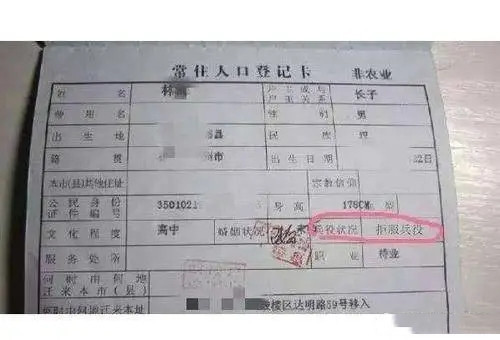 常住人口登记卡 非农业
姓 名 林 户主或与户主关系 长子
曾用名 性别 男
出生地 县 民族
籍贯 州市 出生日期 日
本市(县)其他住址 宗教信仰
公民身份证件编号 3501021 身高 178CM
文化程度 高中 婚姻状况 兵役状况 拒服兵役
服务处所 职业 待业
何时由何地迁来本市(县)
何时由何地迁来本址 楼区达明路59号移入